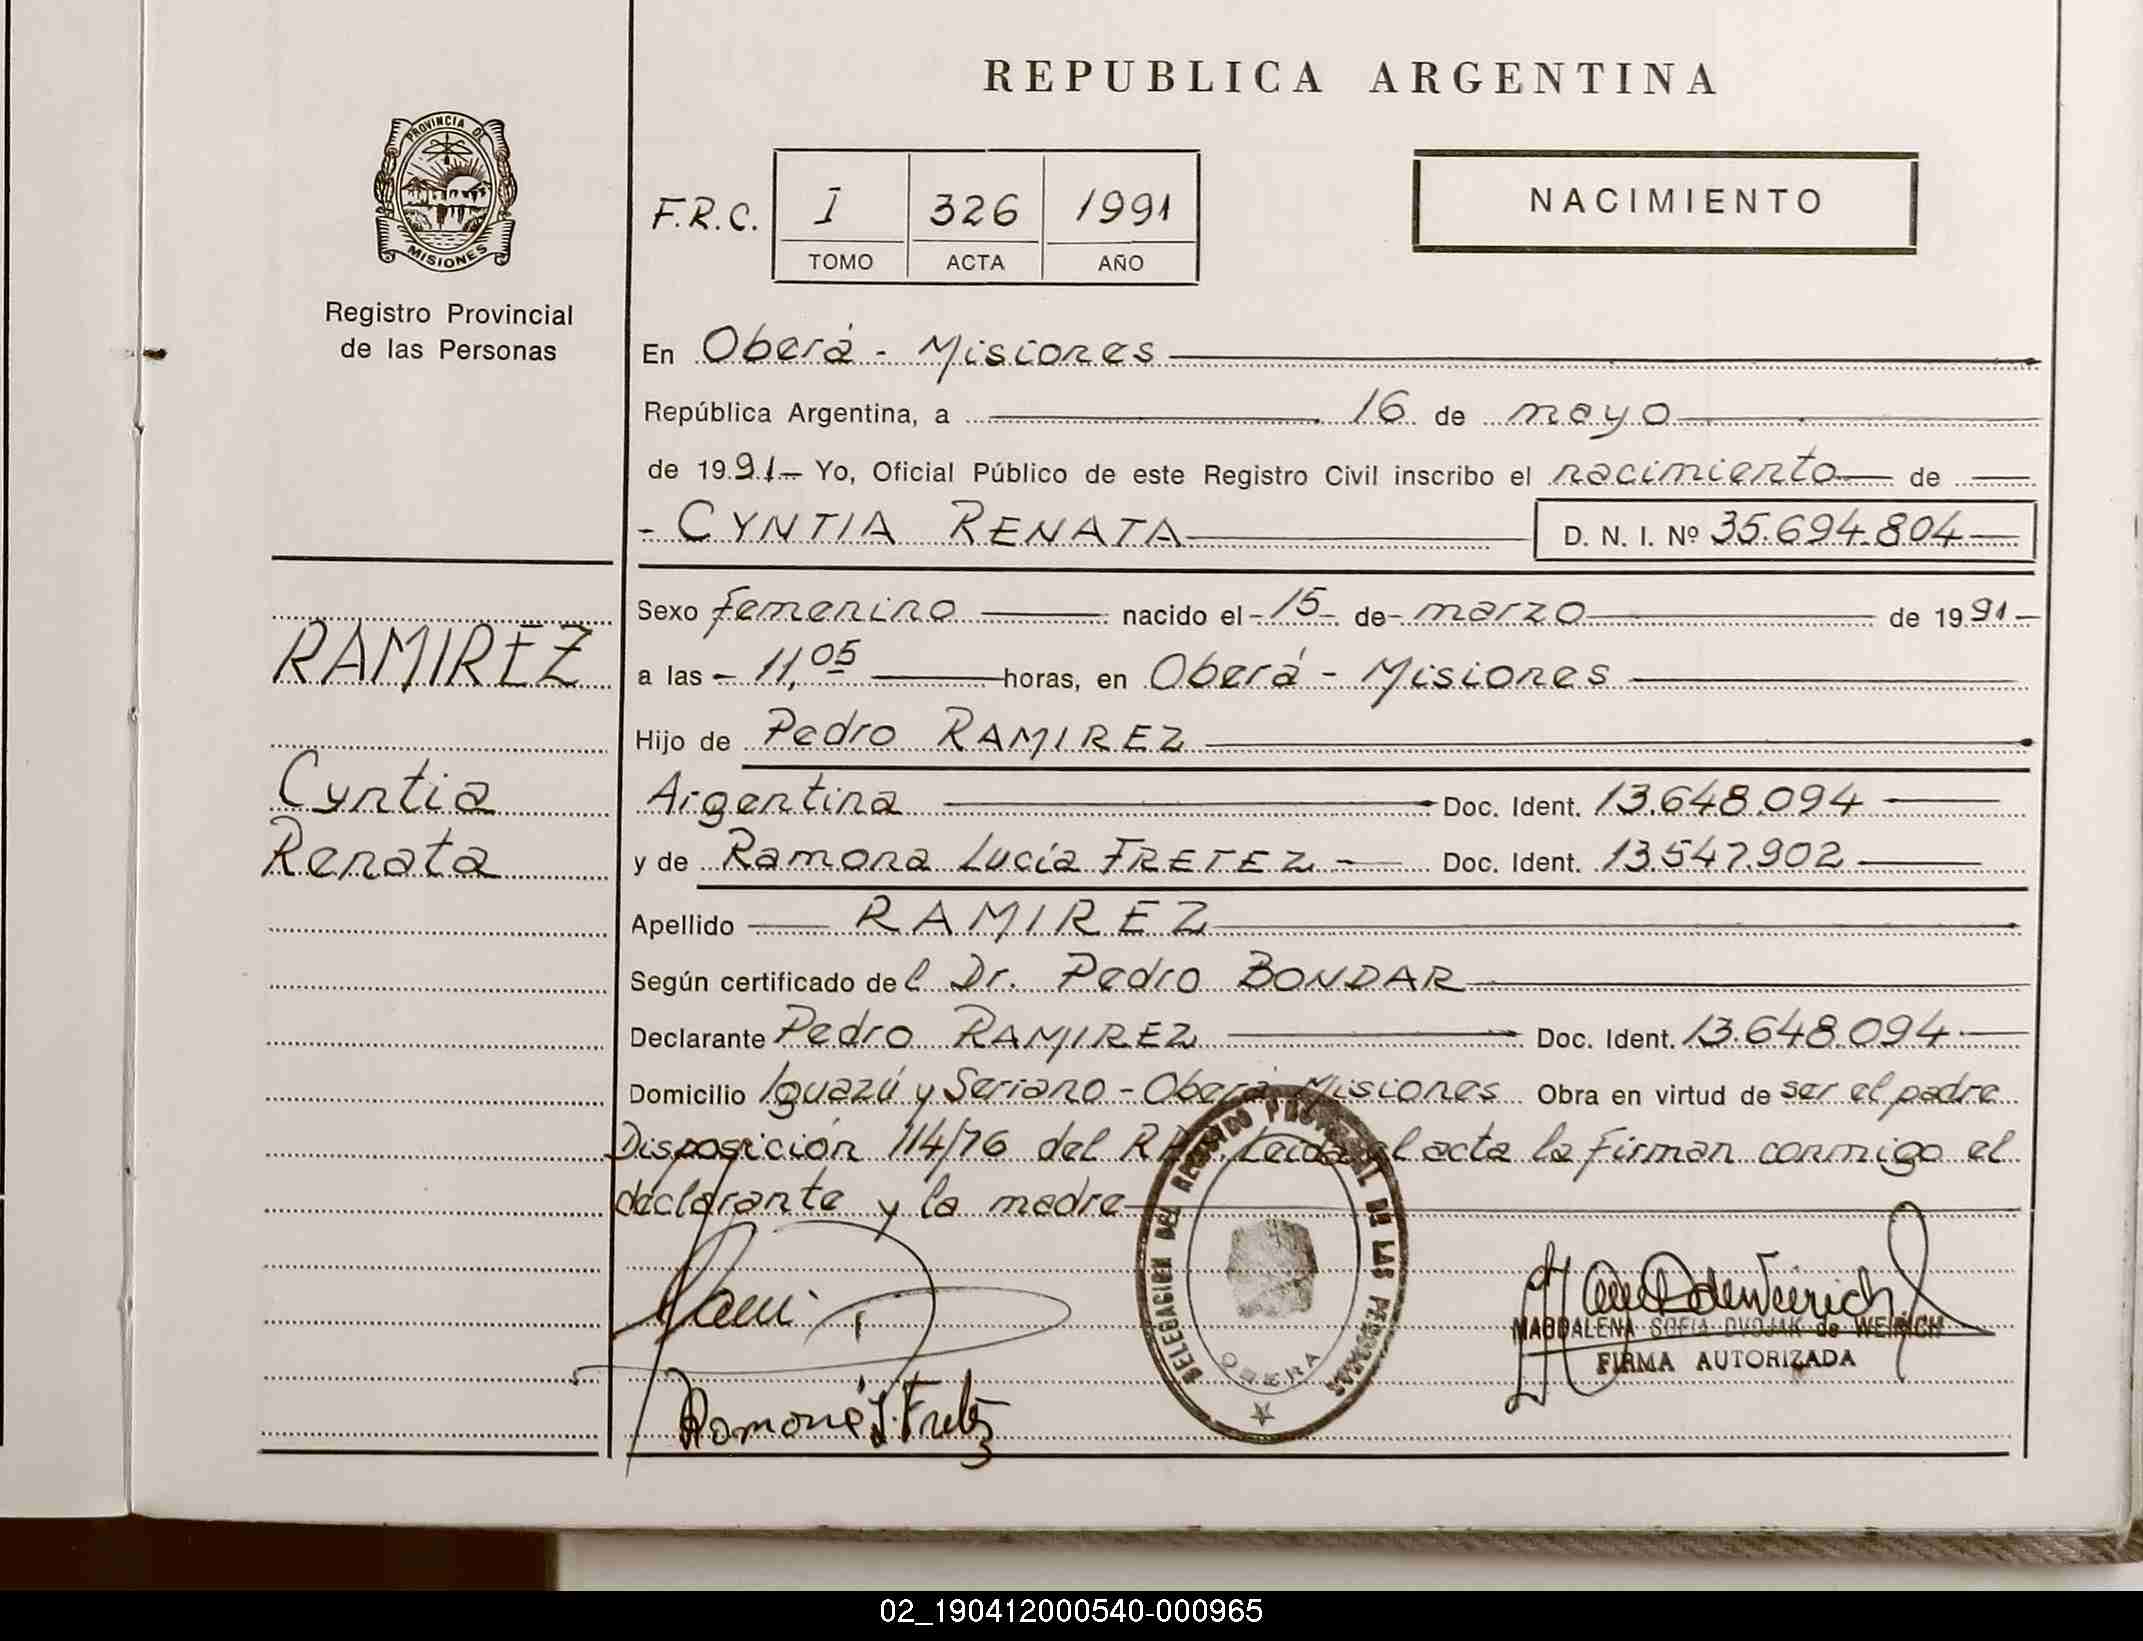 REPUBLICA ARGENTINA
PROVINCIA DE
MISIONES
Registro Provincial
de las Personas
NACIMIENTO
F.R.C. I 326 1991
TOMO ACTA AÑO
En Oberá - Misiones
República Argentina, a 16 de mayo
de 1991 Yo, Oficial Público de este Registro Civil inscribo el nacimiento de
- CYNTIA RENATA D. N. I. Nº 35.694.804
RAMIREZ
Cyntia
Renata
Sexo femenino nacido el 15 de marzo de 1991
a las 11,05 horas, en Oberá - Misiones
Hijo de Pedro RAMIREZ
Argentina Doc. Ident. 13.648.094
y de Ramona Lucía FRETEZ Doc. Ident. 13.547.902
Apellido RAMIREZ
Según certificado del Dr. Pedro BONDAR
Declarante Pedro RAMIREZ Doc. Ident. 13.648.094
Domicilio Iguazú y Seriano - Oberá Misiones Obra en virtud de ser el padre
Disposición 114/76 del Leida el acta la firman conmigo el
declarante y la madre
DELEGACION DEL REGISTRO PROVINCIAL DE LAS PERSONAS
OBERA
MAGDALENA SOFIA DVOJAK de WEIRICH
FIRMA AUTORIZADA
Ramona L. Fretez
02_190412000540-000965